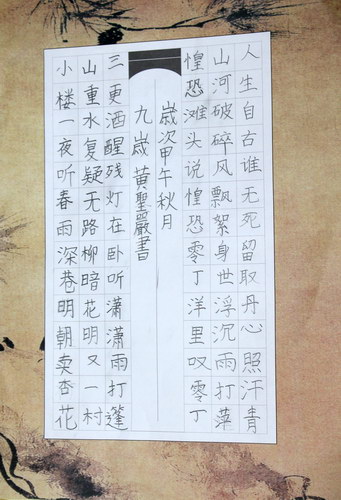 人生自古谁无死留取丹心照汗青
山河破碎风飘絮身世浮沉雨打萍
惶恐滩头说惶恐零丁洋里叹零丁
歲次甲午秋月
九歲 黄聖嚴書
三更酒醒残灯在卧听潇潇雨打蓬
山重水复疑无路柳暗花明又一村
小楼一夜听春雨深巷明朝卖杏花